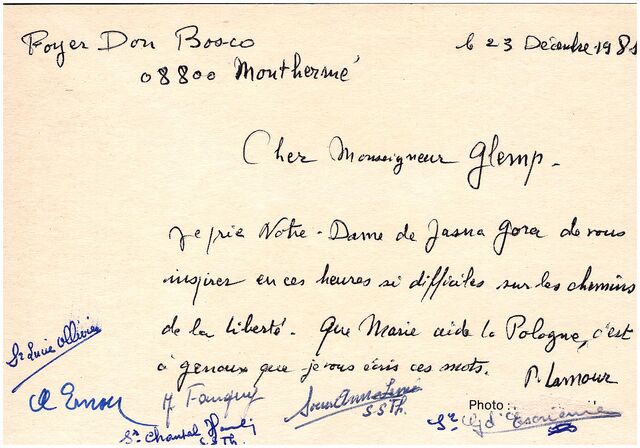 Foyer Don Bosco
le 23 Décembre 1981
08800 Monthermé
Cher Monseigneur Glemp.
Je prie Notre-Dame de Jasna Gora de vous
inspirer en ces heures si difficiles sur les chemins
de la liberté. Que Marie aide la Pologne, c'est
à genoux que je vous écris ces mots.
P. Lamour
Sr Lucie Ollivier
Soeur Anne
S.S.Th.
Photo :
Sr Chantal
S.S.Th.